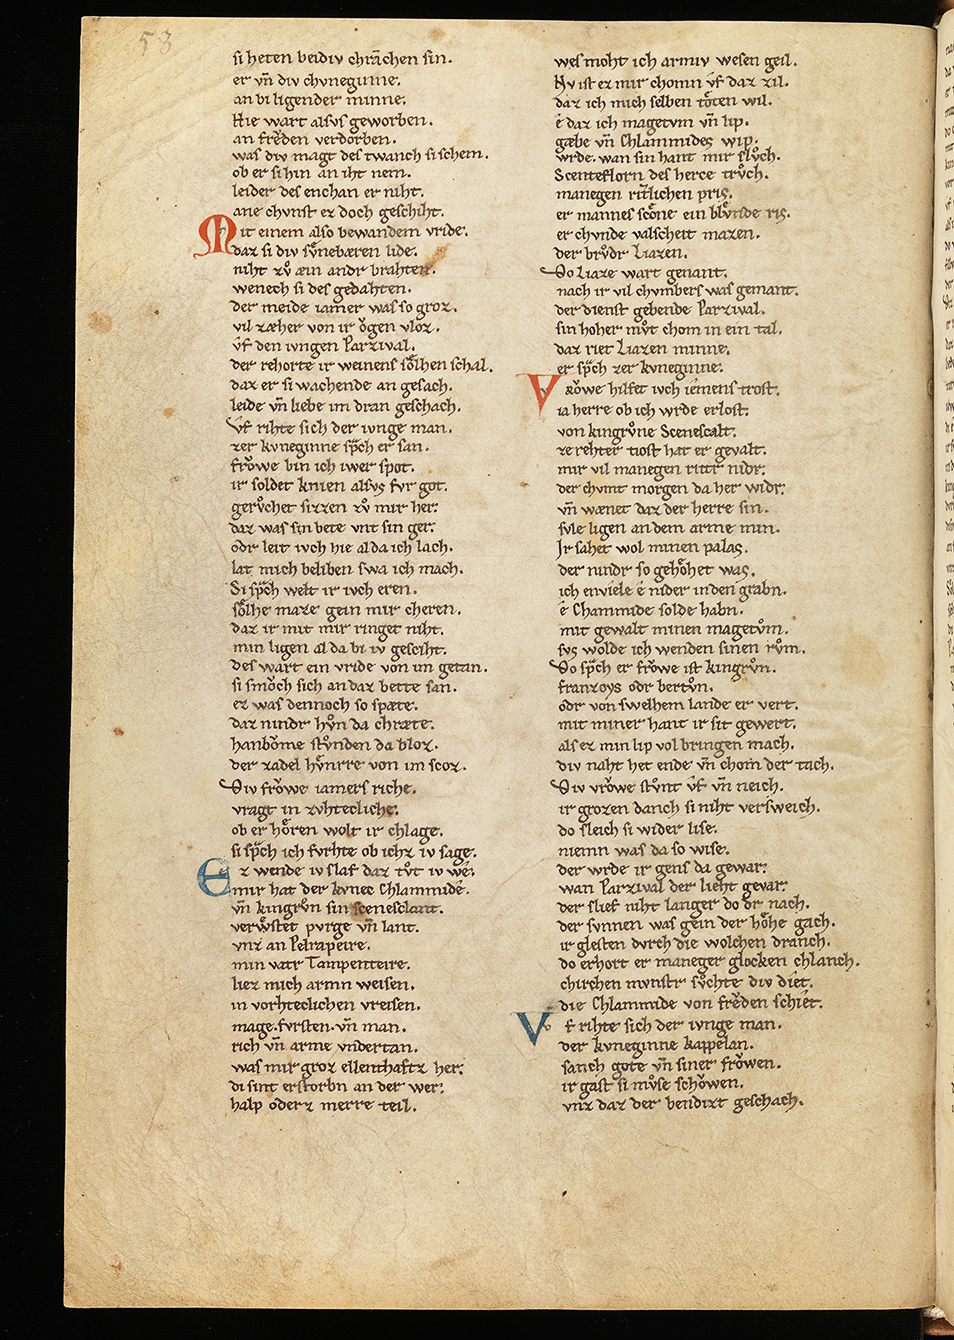 58
si heten beidiv chrāchen sin.
er vn̄ div chvneginne.
an bi ligender minne.
Hie wart alsvs geworben.
an frevͦden verdorben.
was div magt des twanch si schem.
ob er si hin an iht nem.
leider des enchan er niht.
ane chvnst ez doch geschiht.
Mit einem also bewandem vride.
daz si div svͤnebæren lide.
niht zvͦ æin andr brahten.
wenech si des gedahten.
der meide iamer was so groz.
vil zæher von ir oͮgen vloz.
vf den ivngen Parzival.
der rehorte ir weinens soͤlhen schal.
daz er si wachende an gesach.
leide vn̄ liebe im dran geschach.
Vf rihte sich der ivnge man.
zer kvneginne sp̄ch er san.
froͮwe bin ich iwer spot.
ir soldet knien alsvs fvr got.
gervͦchet sizzen zvͦ mir her.
daz was sin bete vnt sin ger.
odr leit ivch hie al da ich lach.
lat mich beliben swa ich mach.
Si sp̄ch welt ir ivch eren.
soͤlhe maze gein mir cheren.
daz ir mit mir ringet niht.
min ligen al da bi iv gesciht.
des wart ein vride von im getan.
si smoͮch sich an daz bette san.
ez was dennoch so spæte.
daz nindr hvͦn da chræte.
hanboͮme stvͦnden da bloz.
der zadel hvͤnrre von im scoz.
Div froͮwe iamers riche.
vragt in zvhtecliche.
ob er hoͤren wolt ir chlage.
si sp̄ch ich fvrhte ob ichz iv sage.
Ez wende iv slaf daz tvͦt iv we.
mir hat der kvnec Chlammide.
vn̄ kingrvͦn sin scenesclant.
verwͤstet pvrge vn̄ lant.
vnz an Pelrapeire.
min vatr Tampenteire.
liez mich armn weisen.
in vorhteclichen vreisen.
mage. fvrsten. vn̄ man.
rich vn̄ arme vndertan.
was mir groz ellenthaftz her.
di sint erstorbn an der wer.
halp oderz merre teil.
wes moht ich armiv wesen geil.
Nv ist ez mir chomn vf daz zil.
daz ich mich selben toͤten wil.
e daz ich magetvm vn̄ lip.
gæbe vn̄ Chlammides wip.
wrde. wan sin hant mir slvͦch.
Scenteflorn des herce trvͦch.
manegen rit̄lichen pris.
er mannes scoͤne ein blvͤnde ris.
er chvnde valscheit mazen.
der brvͦdr Liazen.
Do Liaze wart genant.
nach ir vil chvmbers was gemant.
der dienst gebende Parzival.
sin hoher mvͦt chom in ein tal.
daz riet Liazen minne.
er sp̄ch zer kvneginne.
Vroͮwe hilfet ivch iemens trost.
ia herre ob ich wrde erlost.
von kingrvͦne Scenescalt.
ze rehter tiost hat er gevalt.
mir vil manegen rittr nidr.
der chvmt morgen da her widr.
vn̄ wænet daz der herre sin.
svle ligen an dem arme min.
Ir sahet wol minen palas.
der nindr so gehoͤhet was.
ich enviele e nider in den grabn.
e Chammide solde habn.
mit gewalt minen magetvͦm.
svs wolde ich wenden sinen rvͦm.
Do sp̄ch er froͮwe ist kingrvͦn.
franzoys odr bertvͦn.
odr von swelhem lande er vert.
mit miner hant ir sit gewert.
als ez min lip vol bringen mach.
div naht het ende vn̄ chom der tach.
Div vroͮwe stvͦnt vf vn̄ neich.
ir grozen danch si niht versweich.
do sleich si wider lise.
niemn was da so wise.
der wrde ir gens da gewar.
wan Parzival der lieht gevar.
der slief niht langer do dr nach.
der svnnen was gein der hoͤhe gach.
ir glesten dvrch die wolchen dranch.
do erhort er maneger glocken chlanch.
chirchen mvnstr svͦchte div diet.
die Chlammide von frevͦden schiet.
Vf rihte sich der ivnge man.
der kvneginne kappelan.
sanch gote vn̄ siner froͮwen.
ir gast si mvͦse schoͮwen.
vnz daz der bendizt geschach.